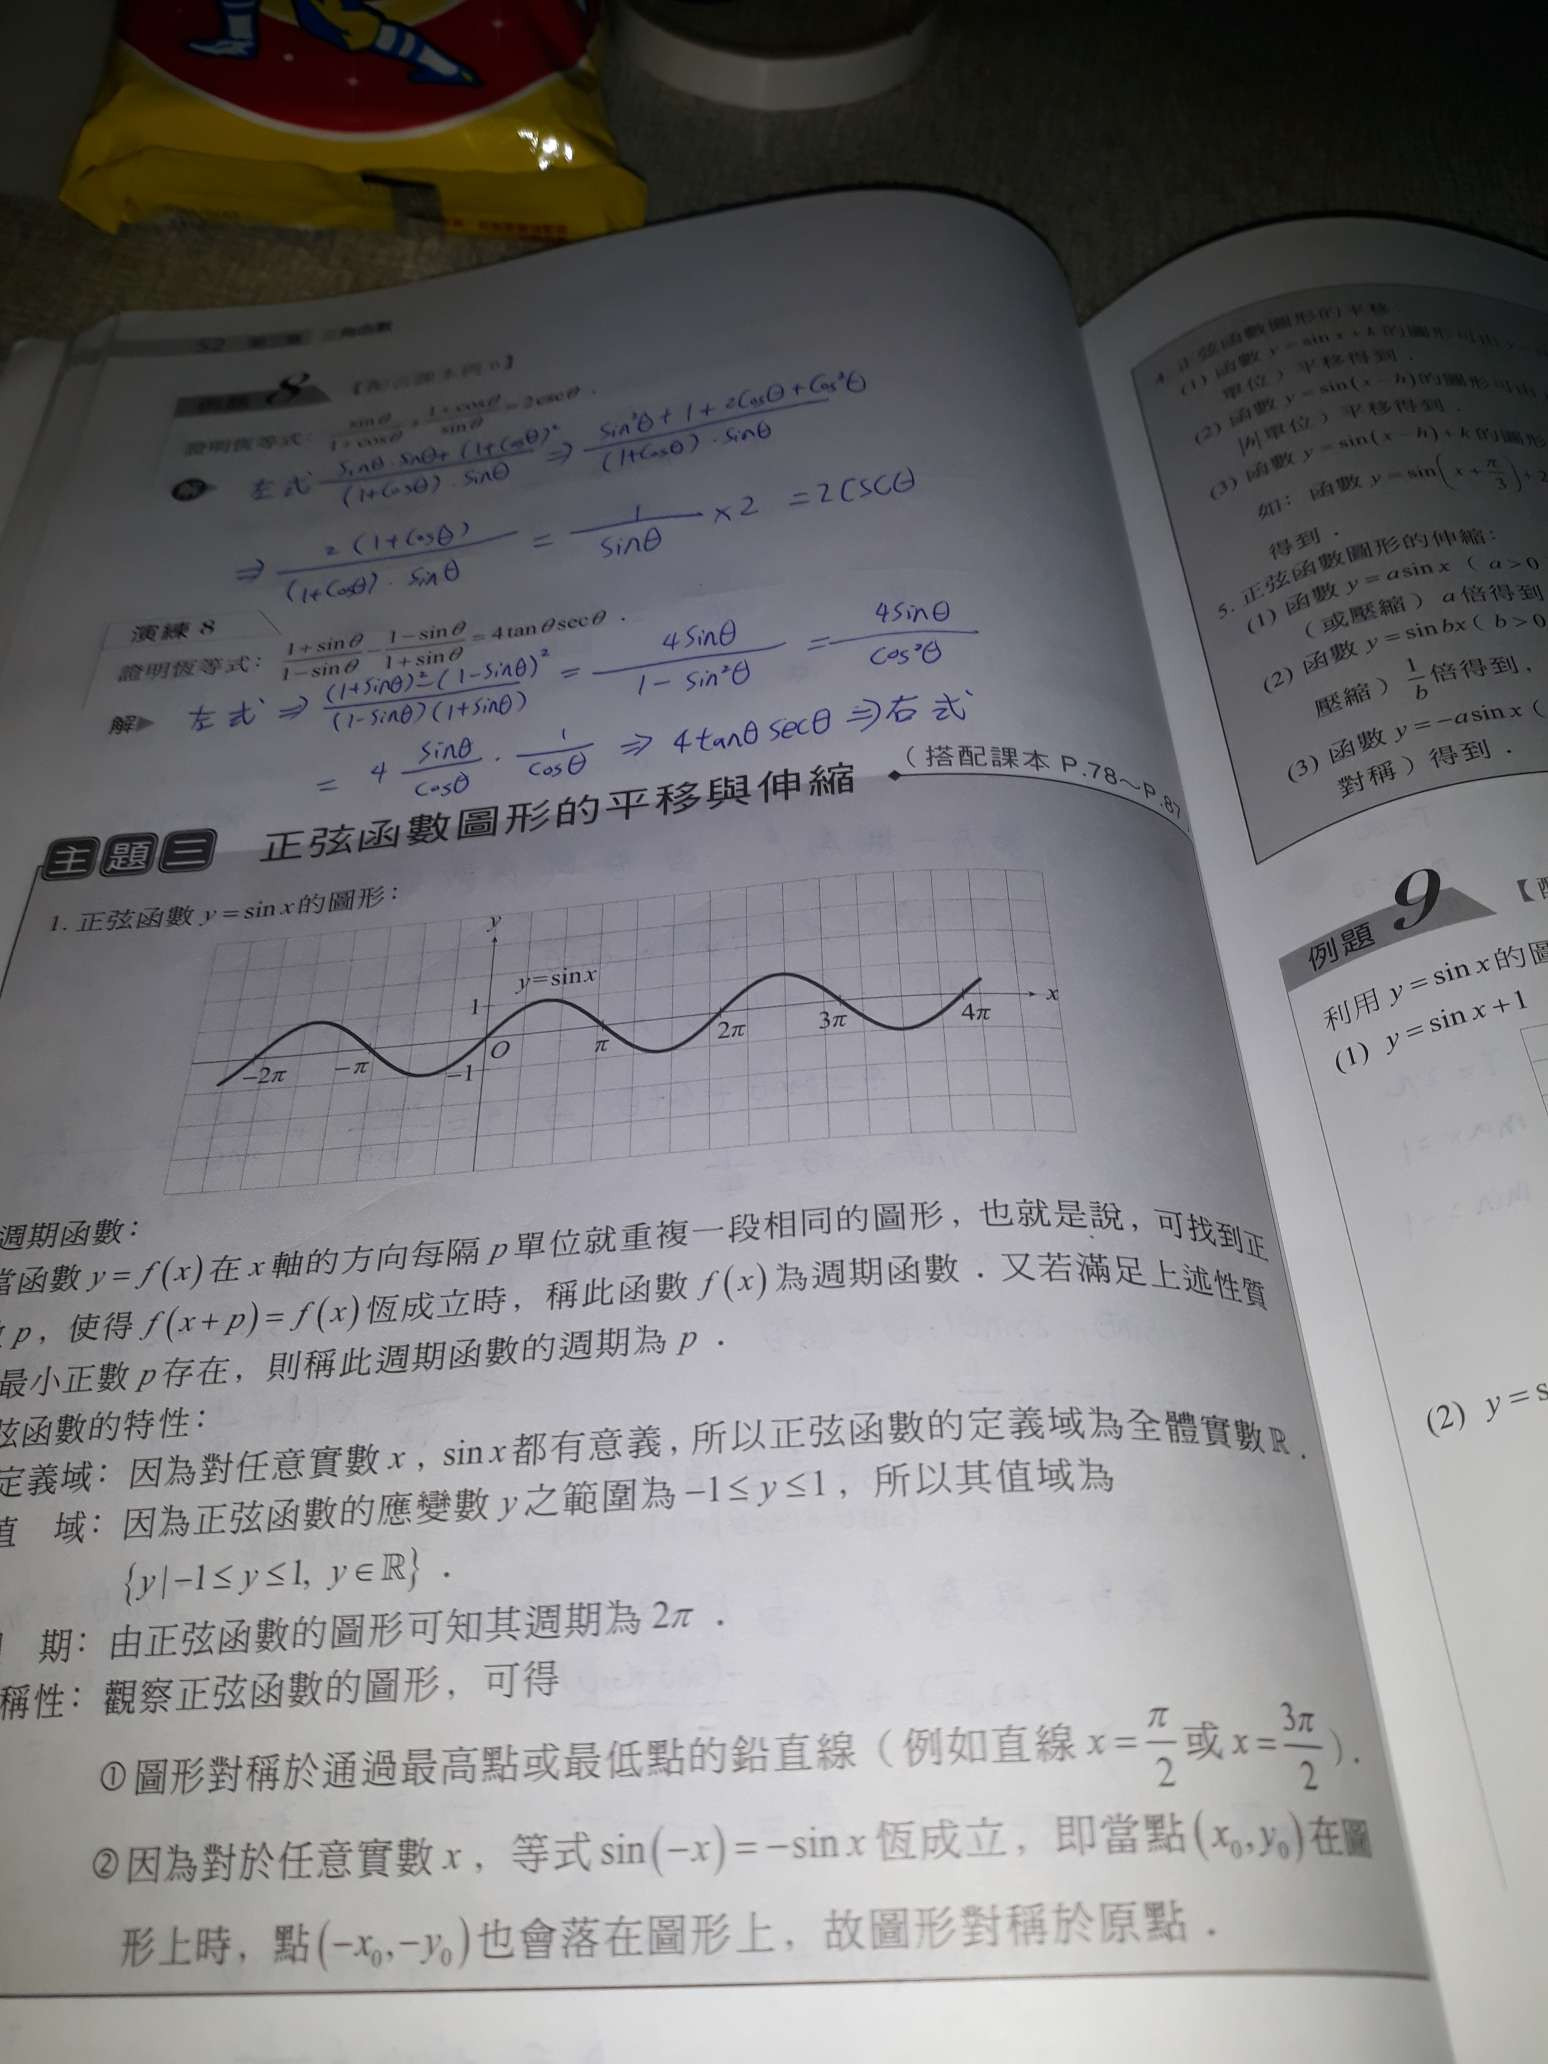 52 第二章 三角函數
例題 8
證明恆等式: sinθ/(1+cosθ) + (1+cosθ)/sinθ = 2cscθ .
解 左式 (sinθ·sinθ+(1+cosθ)²)/((1+cosθ)·sinθ) ⇒ (sin²θ+1+2cosθ+cos²θ)/((1+cosθ)·sinθ)
⇒ 2(1+cosθ)/((1+cosθ)·sinθ) = 1/sinθ ×2 = 2cscθ
演練 8
證明恆等式: (1+sinθ)/(1−sinθ) − (1−sinθ)/(1+sinθ) = 4tanθsecθ .
解 左式 ⇒ ((1+sinθ)²−(1−sinθ)²)/((1−sinθ)(1+sinθ)) = 4sinθ/(1−sin²θ) = 4sinθ/cos²θ
= 4 sinθ/cosθ · 1/cosθ ⇒ 4tanθsecθ ⇒ 右式
主題三 正弦函數圖形的平移與伸縮 (搭配課本 P.78~P.87
1. 正弦函數 y=sin x的圖形:
y
y=sinx
1
x
−2π −π O π 2π 3π 4π
−1
週期函數:
當函數 y=f(x)在 x 軸的方向每隔 p 單位就重複一段相同的圖形, 也就是說, 可找到正
p, 使得 f(x+p)=f(x)恆成立時, 稱此函數 f(x)為週期函數. 又若滿足上述性質
最小正數 p 存在, 則稱此週期函數的週期為 p .
弦函數的特性:
定義域: 因為對任意實數 x, sin x 都有意義, 所以正弦函數的定義域為全體實數ℝ.
值 域: 因為正弦函數的應變數 y 之範圍為 −1≤y≤1, 所以其值域為
{y|−1≤y≤1, y∈ℝ} .
期: 由正弦函數的圖形可知其週期為 2π .
稱性: 觀察正弦函數的圖形, 可得
①圖形對稱於通過最高點或最低點的鉛直線 (例如直線 x=π/2 或 x=3π/2).
②因為對於任意實數 x, 等式 sin(−x)=−sin x 恆成立, 即當點(x₀,y₀)在圖
形上時, 點(−x₀,−y₀)也會落在圖形上, 故圖形對稱於原點.
4. 正弦函數圖形的平移
(1) 函數 y=sin x+k 的圖形可由
單位) 平移得到.
(2) 函數 y=sin(x−h)的圖形可由
|h|單位) 平移得到.
(3) 函數 y=sin(x−h)+k 的圖形
如: 函數 y=sin(x+π/3)+2
得到.
5. 正弦函數圖形的伸縮:
(1) 函數 y=asin x ( a>0
(或壓縮) a 倍得到
(2) 函數 y=sin bx ( b>0
壓縮) 1/b 倍得到,
(3) 函數 y=−asin x (
對稱) 得到.
例題 9
利用 y=sin x 的圖
(1) y=sin x+1
(2) y=s